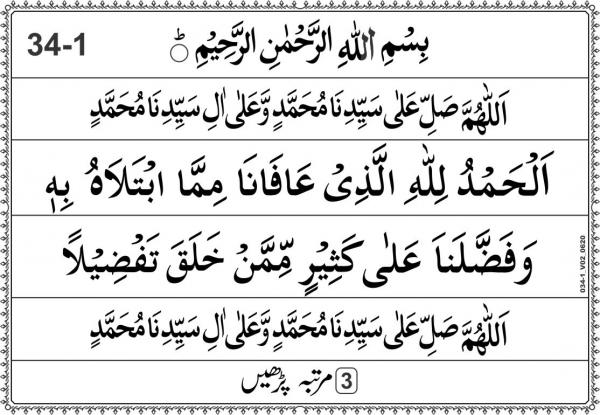 34-1
بِسْمِ اللهِ الرَّحْمٰنِ الرَّحِيْمِ ط
اَللّٰهُمَّ صَلِّ عَلٰى سَيِّدِنَا مُحَمَّدٍ وَّعَلٰى اٰلِ سَيِّدِنَا مُحَمَّدٍ
اَلْحَمْدُ لِلّٰهِ الَّذِىْ عَافَانَا مِمَّا ابْتَلَاهُ بِهٖ
وَفَضَّلَنَا عَلٰى كَثِيْرٍ مِّمَّنْ خَلَقَ تَفْضِيْلًا
اَللّٰهُمَّ صَلِّ عَلٰى سَيِّدِنَا مُحَمَّدٍ وَّعَلٰى اٰلِ سَيِّدِنَا مُحَمَّدٍ
3 مرتبہ پڑھیں
034-1_V02_0620